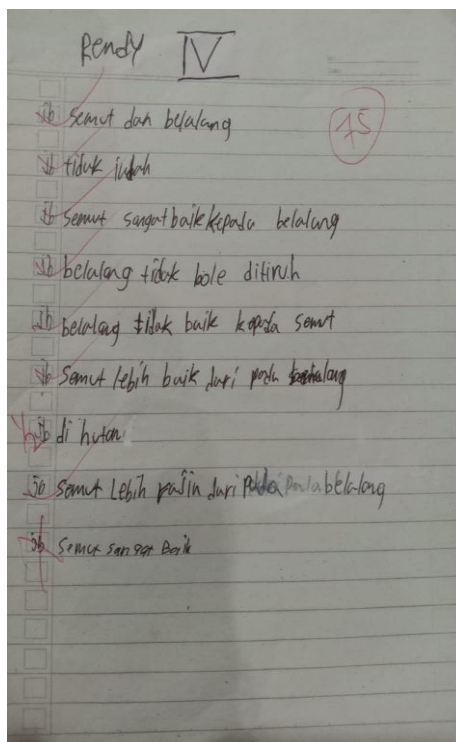 Rendy IV
75
jb semut dan belalang
jb tidak indah
jb semut sangat baik kepada belalang
jb belalang tidak bole ditiruh
jb belalang tidak baik kepada semut
jb semut lebih baik dari pada belalang
½ jb di hutan
jb semut Lebih rajin dari pada belalang
jb semut sangat Baik